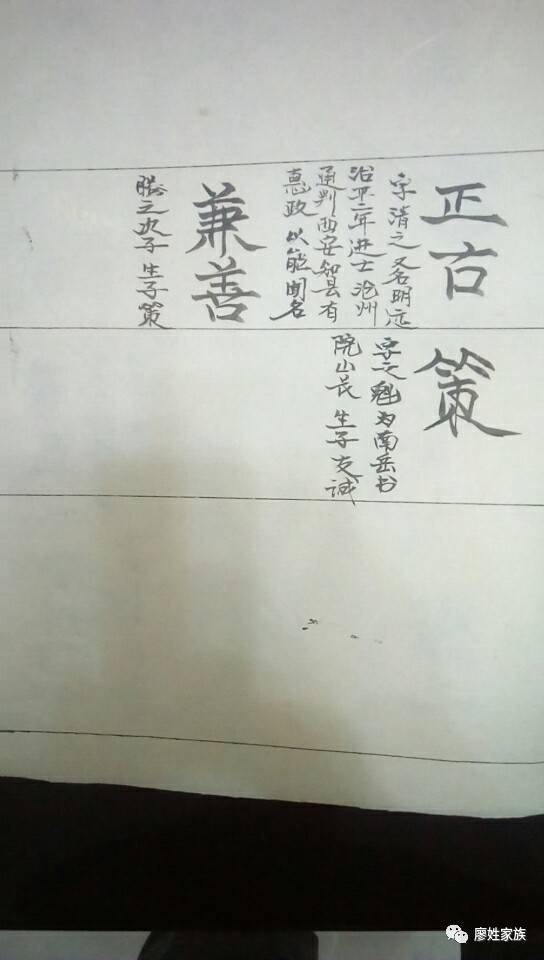 正古
字清之又名明远
治平二年进士沧州
通判西安知县有
惠政以能闻名
兼善
腾之次子生子策
策
字之魁为南岳书
院山长生子友诚
廖姓家族